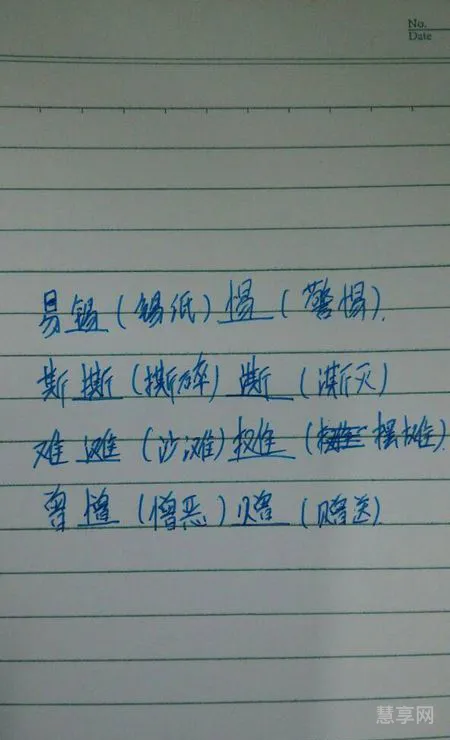 No.
Date
易锡(锡纸)惕(警惕).
斯撕(撕碎)澌(澌灭)
难滩(沙滩)摊(摆摊).
曾憎(憎恶)赠(赠送)
慧享网